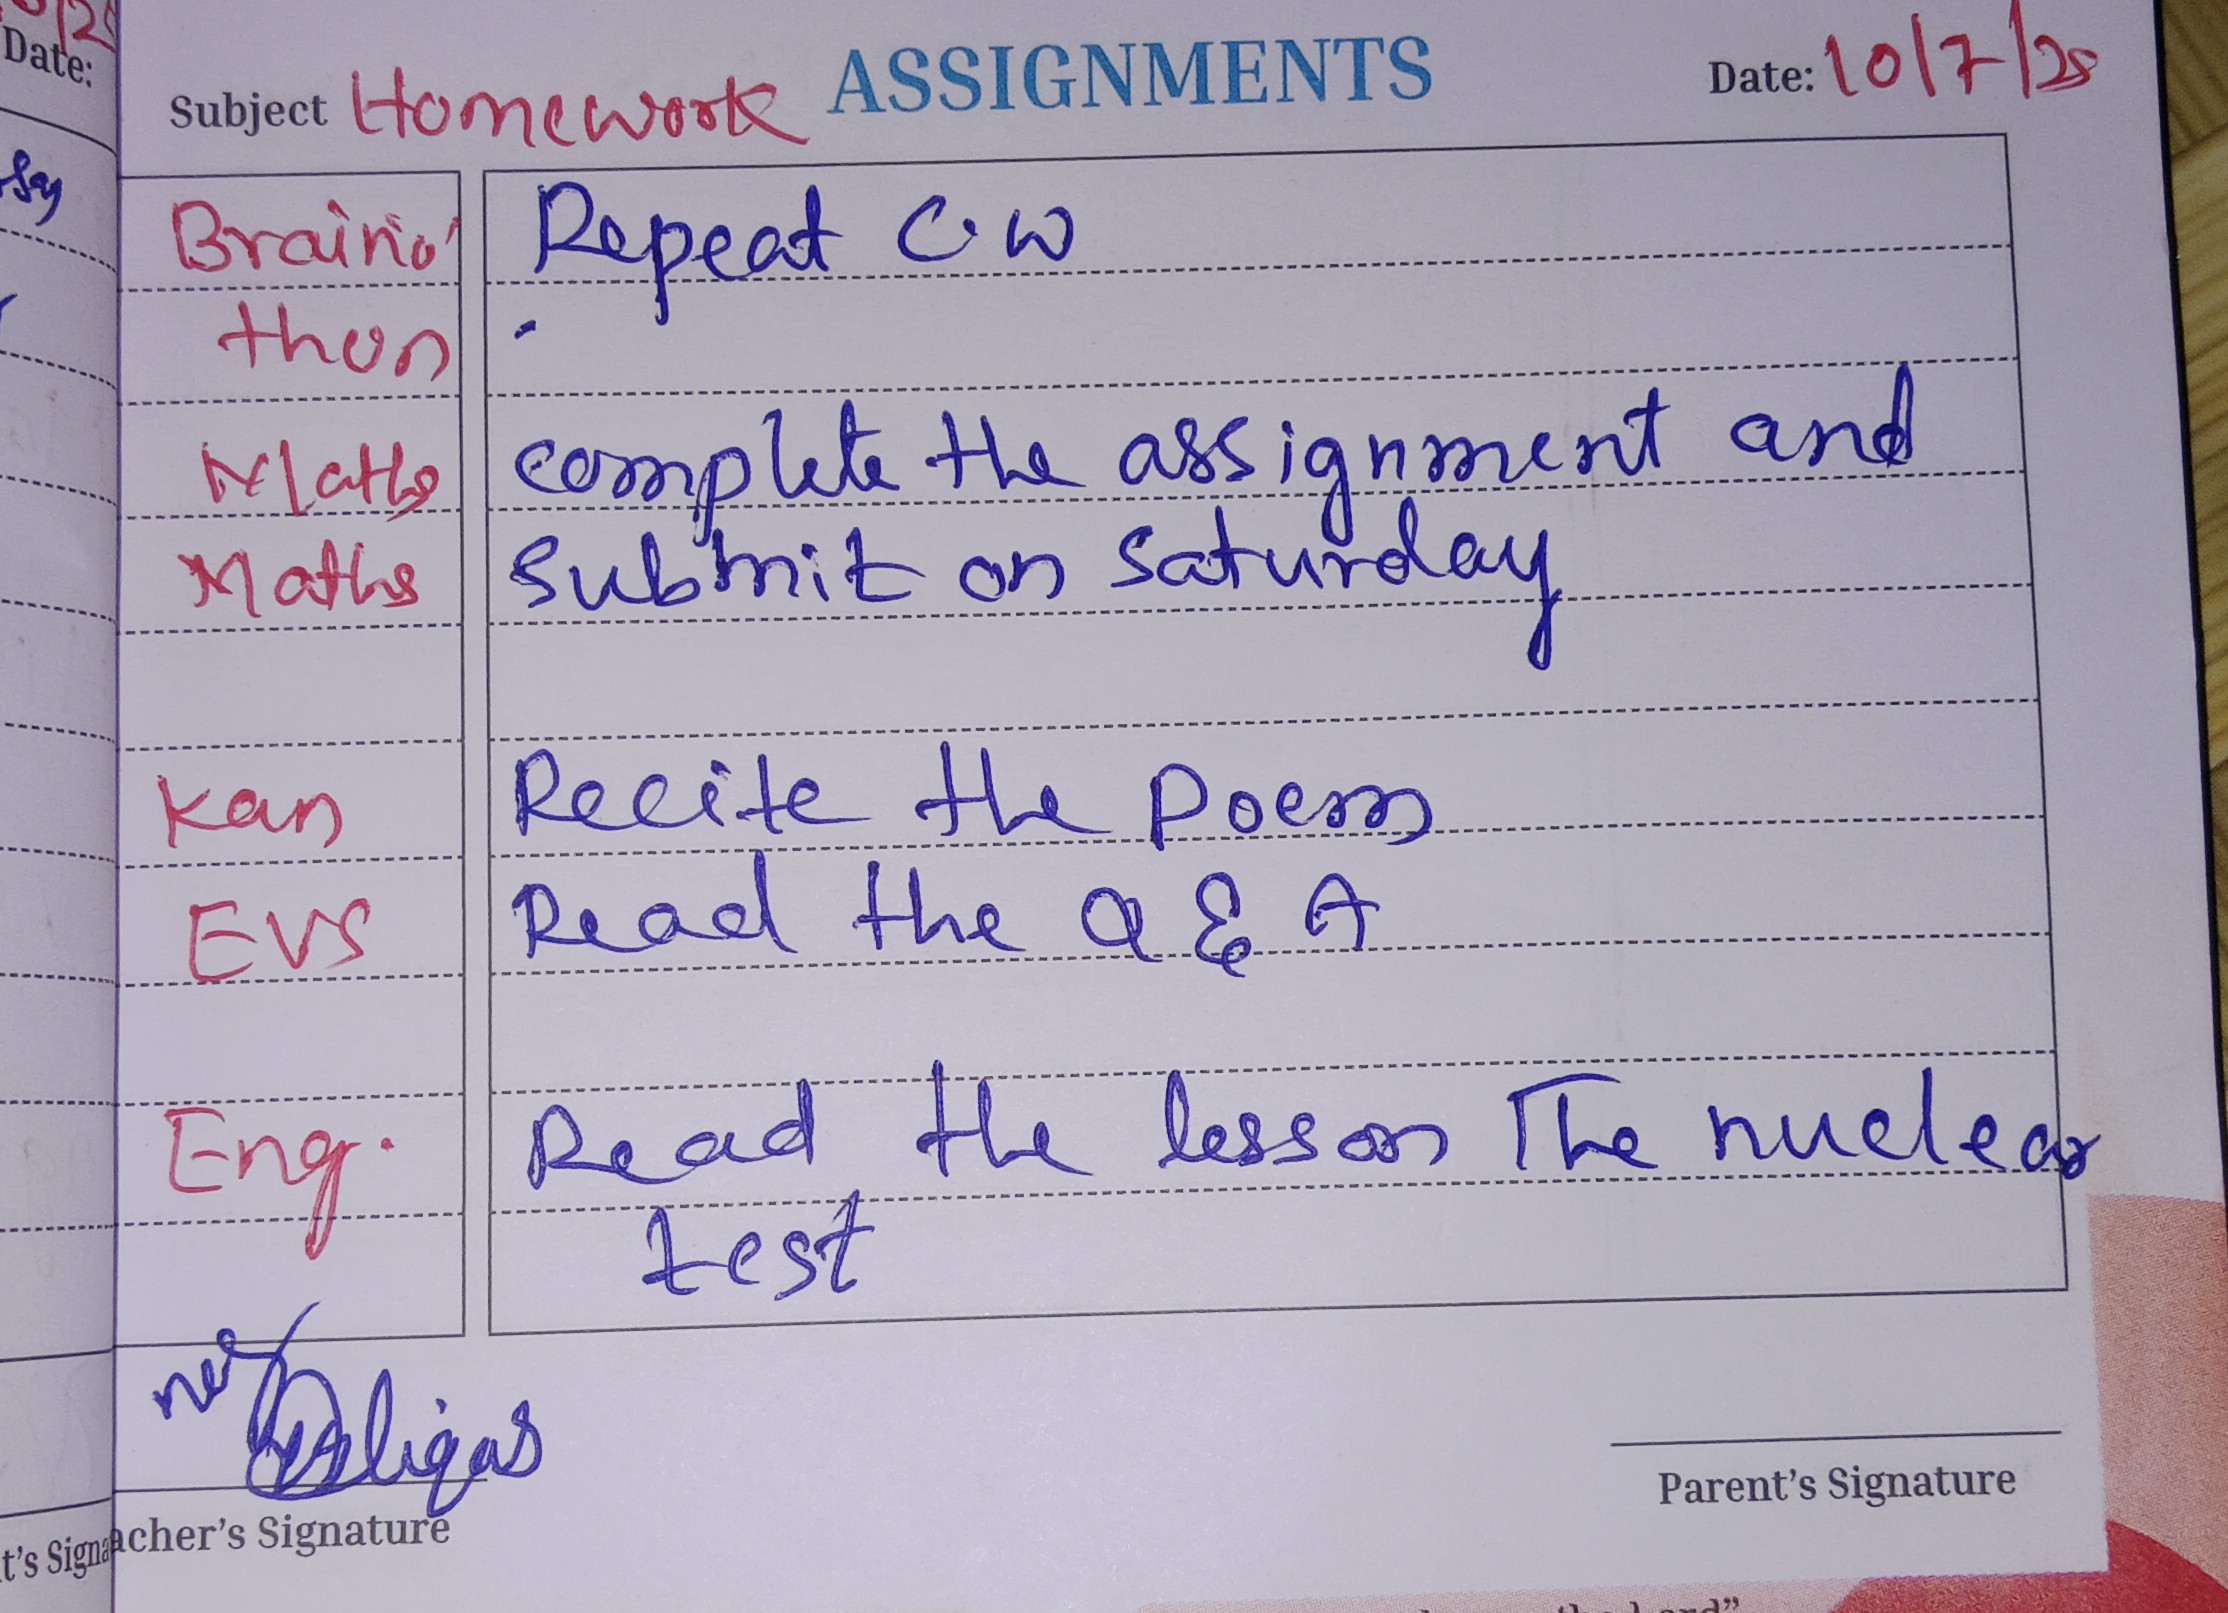 Date:
ASSIGNMENTS
Subject Homework Date: 10/7/25
Braino
Repeat C.W
thon
Maths complete the assignment and
Maths submit on Saturday
Kan Recite the Poem
EVS Read the Q & A
Eng. Read the lesson The nuclear
test
Parent's Signature
acher's Signature
t's Signa